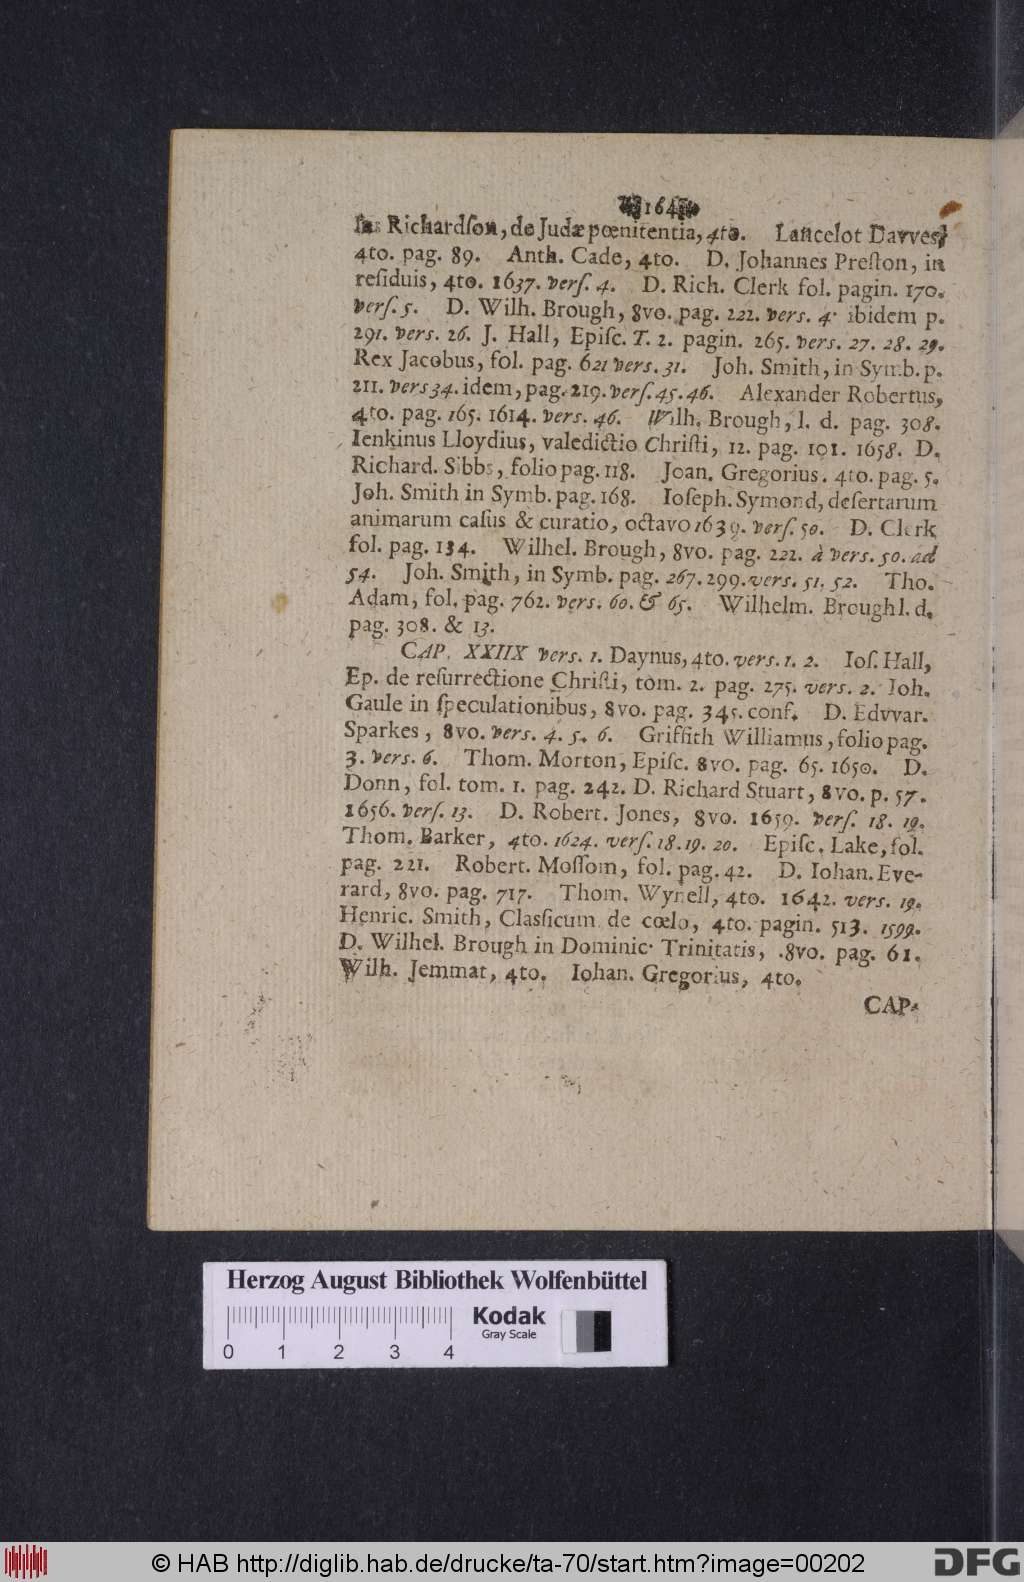 164
las Richardſon, de Judæ pœnitentia, 4to. Lancelot Davves,
4to. pag. 89. Anth. Cade, 4to. D. Johannes Preſton, in
reſiduis, 4to. 1637. verſ. 4. D. Rich. Clerk fol. pagin. 170.
verſ. 5. D. Wilh. Brough, 8vo. pag. 222. vers. 4. ibidem p.
291. vers. 26. J. Hall, Epiſc. T. 2. pagin. 265. vers. 27. 28. 29.
Rex Jacobus, fol. pag. 621 vers. 31. Joh. Smith, in Symb. p.
211. vers 34. idem, pag. 219. verſ. 45. 46. Alexander Robertus,
4to. pag. 165. 1614. vers. 46. Wilh. Brough, l. d. pag. 308.
Ienkinus Lloydius, valedictio Chriſti, 12. pag. 101. 1658. D.
Richard. Sibbs, folio pag. 118. Joan. Gregorius. 4to. pag. 5.
Joh. Smith in Symb. pag. 168. Ioſeph. Symond, deſertarum
animarum caſus & curatio, octavo 1639. verſ. 50. D. Clerk
fol. pag. 134. Wilhel. Brough, 8vo. pag. 222. à vers. 50. ad
54. Joh. Smith, in Symb. pag. 267. 299. vers. 51. 52. Tho.
Adam, fol. pag. 762. vers. 60. & 65. Wilhelm. Brough l. d.
pag. 308. & 13.
CAP. XXIIX vers. 1. Daynus, 4to. vers. 1. 2. Ioſ. Hall,
Ep. de reſurrectione Chriſti, tom. 2. pag. 275. vers. 2. Ioh.
Gaule in ſpeculationibus, 8vo. pag. 345. conf. D. Edvvar.
Sparkes, 8vo. vers. 4. 5. 6. Griffith Williamus, folio pag.
3. vers. 6. Thom. Morton, Epiſc. 8vo. pag. 65. 1650. D.
Donn, fol. tom. 1. pag. 242. D. Richard Stuart, 8vo. p. 57.
1656. verſ. 13. D. Robert. Jones, 8vo. 1659. verſ. 18. 19.
Thom. Barker, 4to. 1624. verſ. 18. 19. 20. Epiſc. Lake, fol.
pag. 221. Robert. Moſſom, fol. pag. 42. D. Iohan. Eve-
rard, 8vo. pag. 717. Thom. Wynell, 4to. 1642. vers. 19.
Henric. Smith, Claſſicum de cœlo, 4to. pagin. 513. 1599.
D. Wilhel. Brough in Dominic. Trinitatis, 8vo. pag. 61.
Wilh. Jemmat, 4to. Iohan. Gregorius, 4to.
CAP.
Herzog August Bibliothek Wolfenbüttel
Kodak
Gray Scale
0 1 2 3 4
© HAB http://diglib.hab.de/drucke/ta-70/start.htm?image=00202
DFG